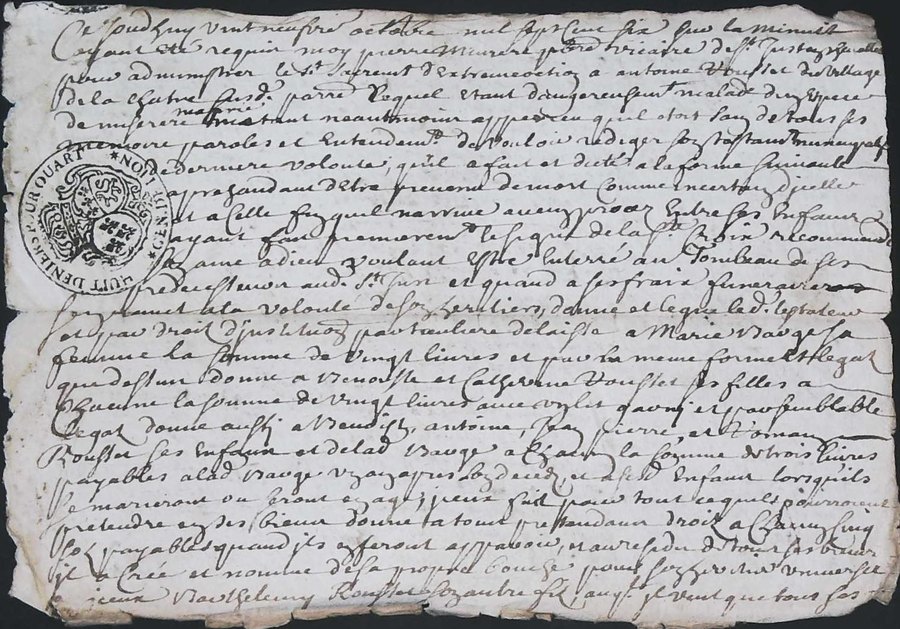 Ce Jourdhuy vint neufvie octobre mil sept cent six sur la minuit
ayant été requis moy pierre pbre vicaire de St Just
pour administrer le St Sacrement d'Extremeonction a antoine Rousset du village
de la Chatre Susd. parre lequel etant dangereusemt malade d'un espece
de miserere neantmoins apperceu qu'il etoit sain de tous ses
memoire paroles et Entendemt de vouloir rediger son testament
de derniere volonte, qu'il a fait et dicté a la forme suivante
apprehandant d'Etre prevenu de mort comme incertain d'jcelle
et a Celle fin quil narrive aucun proces Entre ses Enfans
ayant fait premieremt le signe de la Ste Croix recommandé
son ame a dieu voulant Estre Enterré au Tombeau de ses
predecesseur aud. St Just et quand a ses frais funeraires
a la volonté de ses heritiers, donne et legue led. testateur
et par droit d'jnstituon particuliere delaisse a Marie Bauge sa
femme la somme de vingt livres et par la meme forme et legat
que dessus donne a Benoiste et Catherine Rousset ses filles a
Chacune la somme de vingt livres avec et par semblable
legat donne aussi a antoine, Jean pierre, et Romain
Rousset ses Enfans et de lad Bauge a Chacun la somme de trois livres
payables a lad Bauge apres son deced, et a sesd Enfans lorsquils
se marieront ou seront en age, pour tout ce quels pourroient
pretendre en ses biens donne a tous pretendans droit a Chacun Cinq
sols payables quand ils en feront apparoir, et au residu de tous ses biens
jl a Créé et nommé de sa propre bouche pour son heritier universel
Barthelemy Rousset son autre fils, jl veut que tous ses
NON
HUIT DENIERS PAR QUART